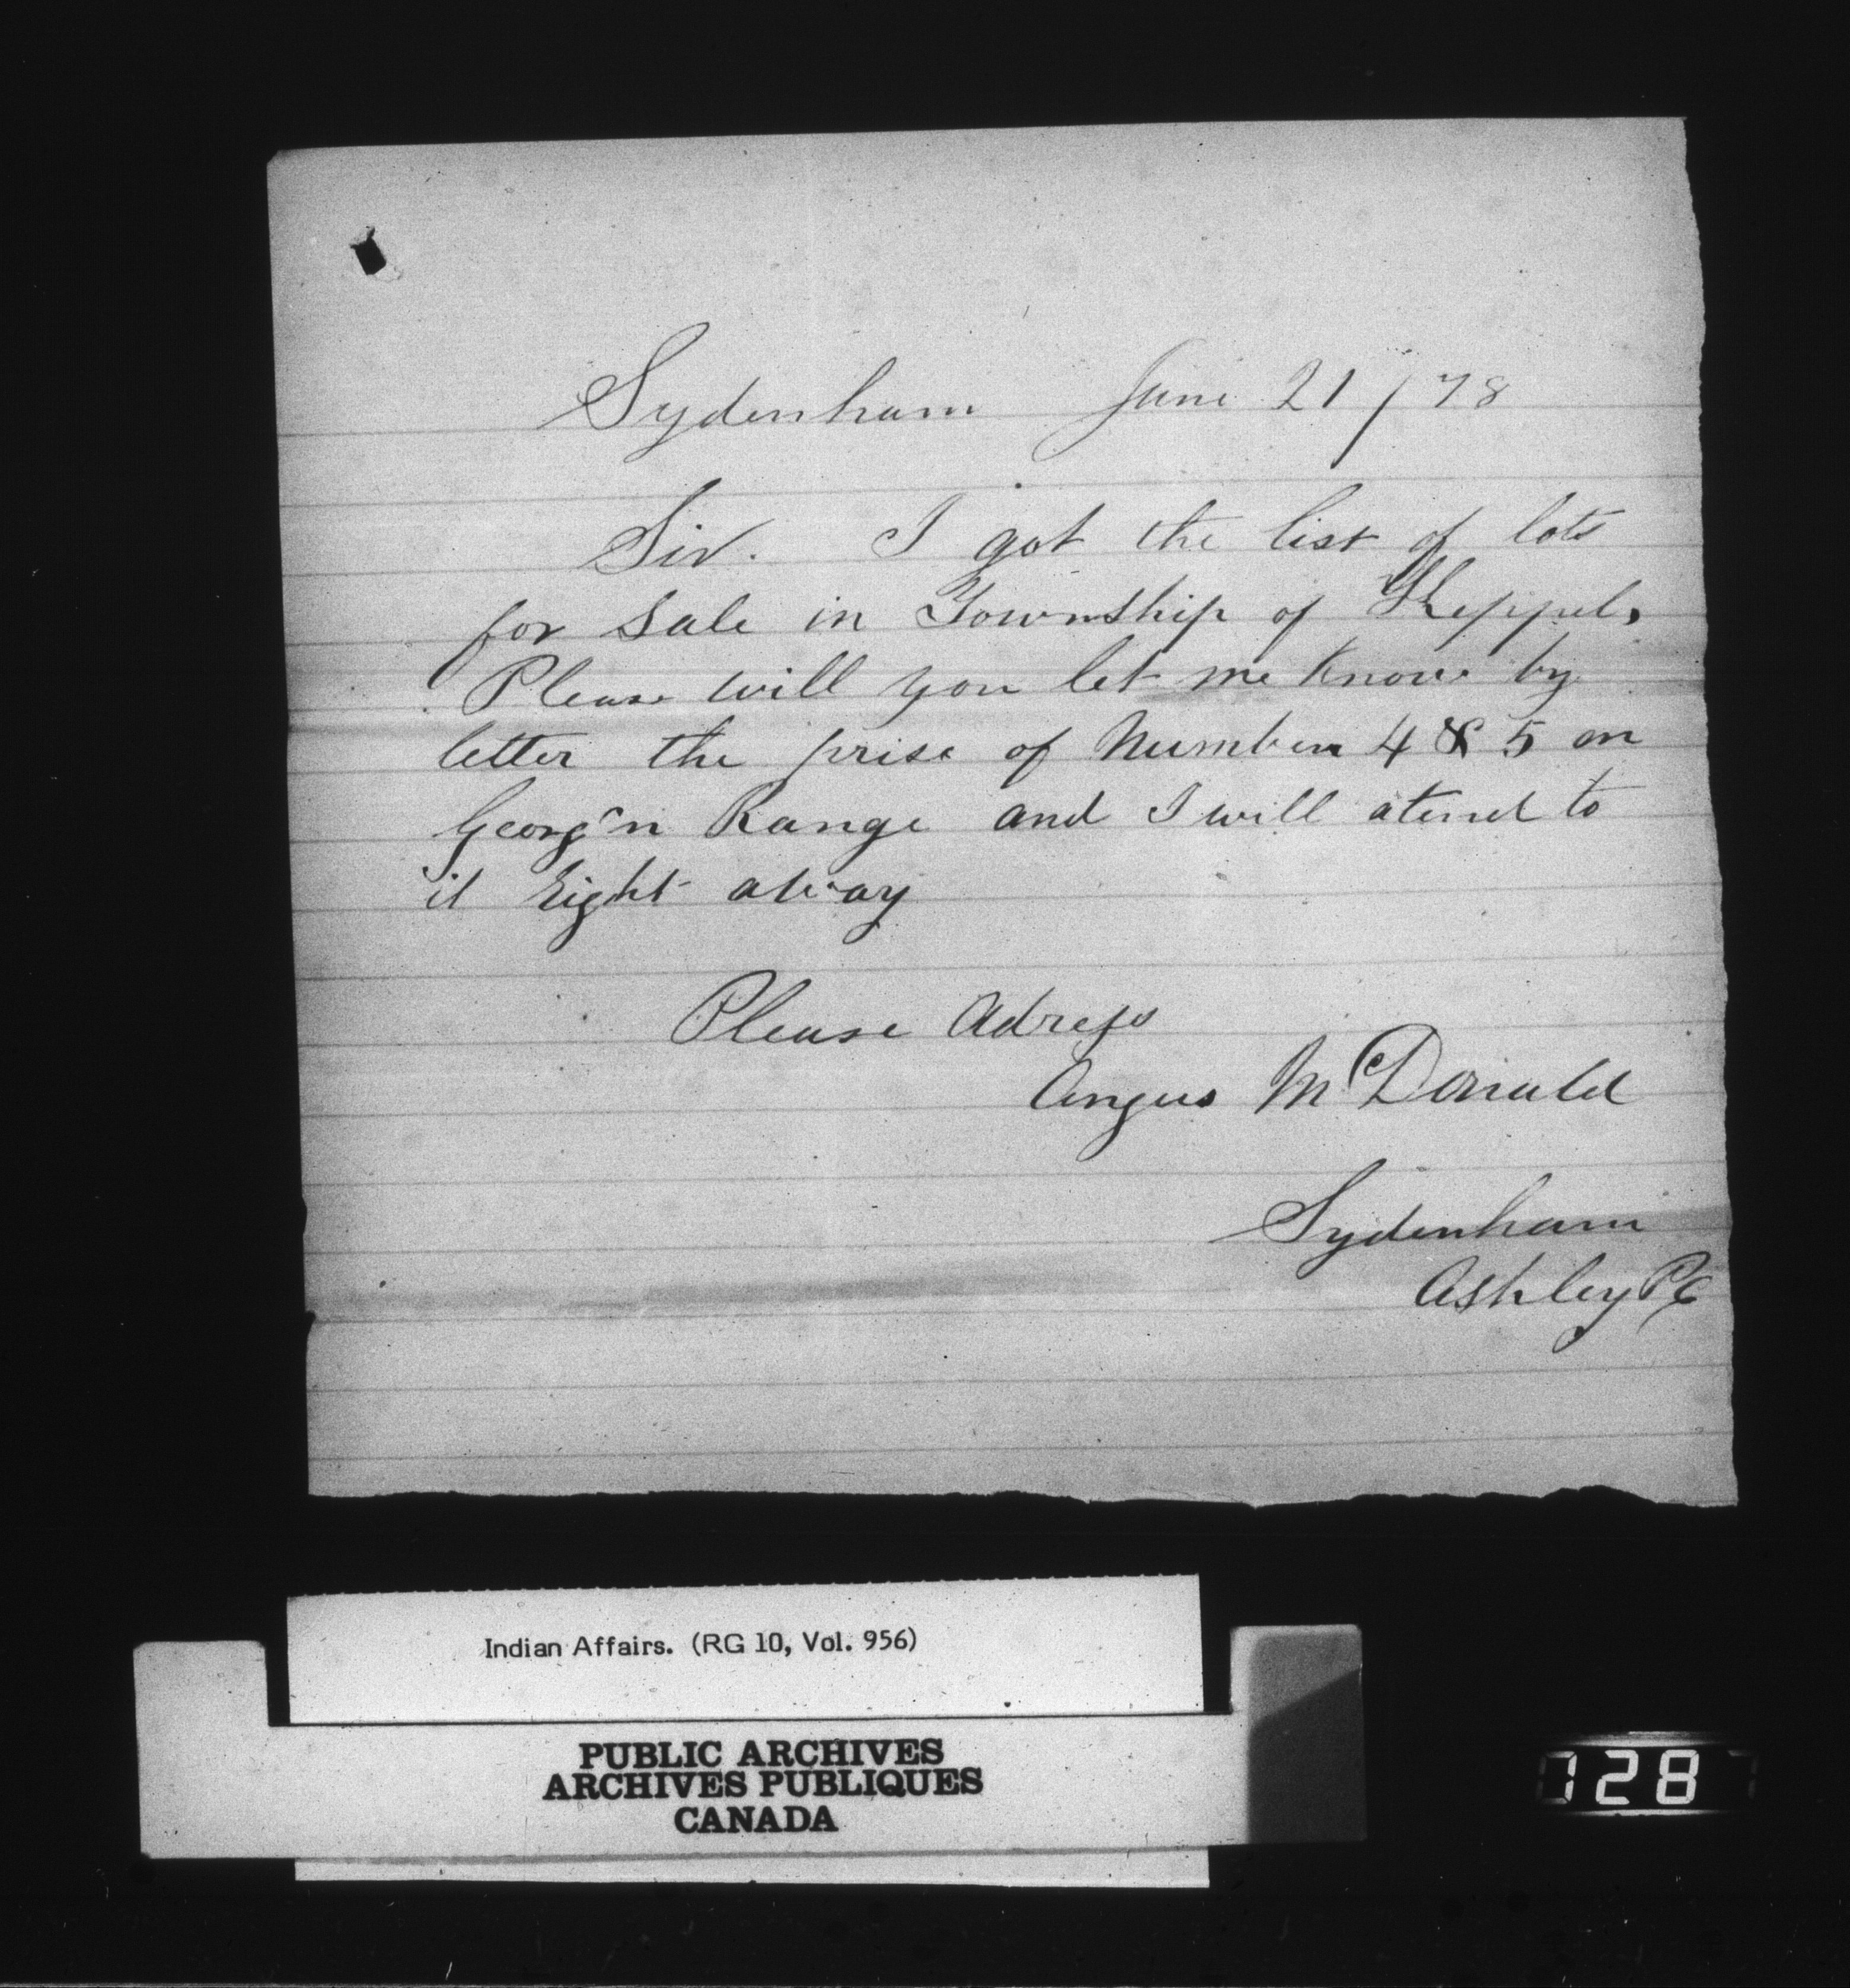 Sydenham June 21/78
Sir. I got the list of lots
for Sale in Township of Keppel,
Please will you let me know by
letter the prise of Number 4 & 5 on
Georg'n Range and I will atend to
it Right away
Please Adress
Angus McDonald
Sydenham
Ashley PO
Indian Affairs. (RG 10, Vol. 956)
PUBLIC ARCHIVES
ARCHIVES PUBLIQUES
CANADA
128